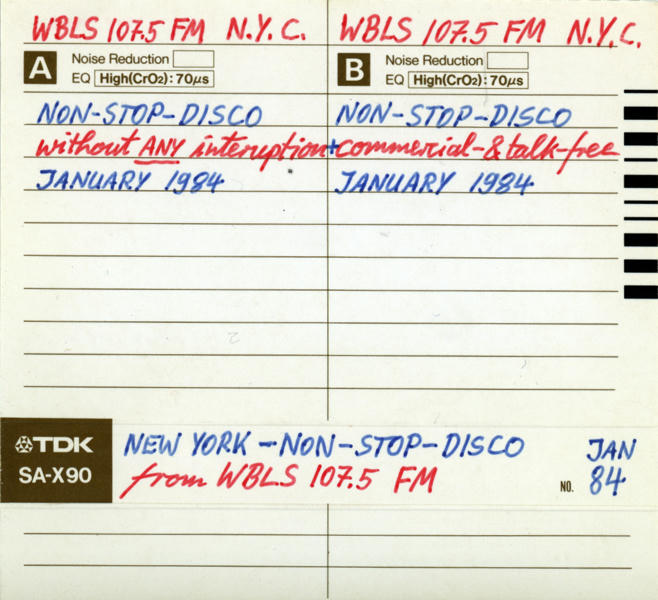 WBLS 107.5 FM N.Y.C.
WBLS 107.5 FM N.Y.C.
A
Noise Reduction
EQ High(CrO2): 70μs
B
Noise Reduction
EQ High(CrO2): 70μs
NON-STOP-DISCO
NON-STOP-DISCO
without ANY interuption + commercial-& talk-free
JANUARY 1984
JANUARY 1984
TDK
SA-X90
NEW YORK - NON-STOP-DISCO
from WBLS 107.5 FM
JAN
NO. 84